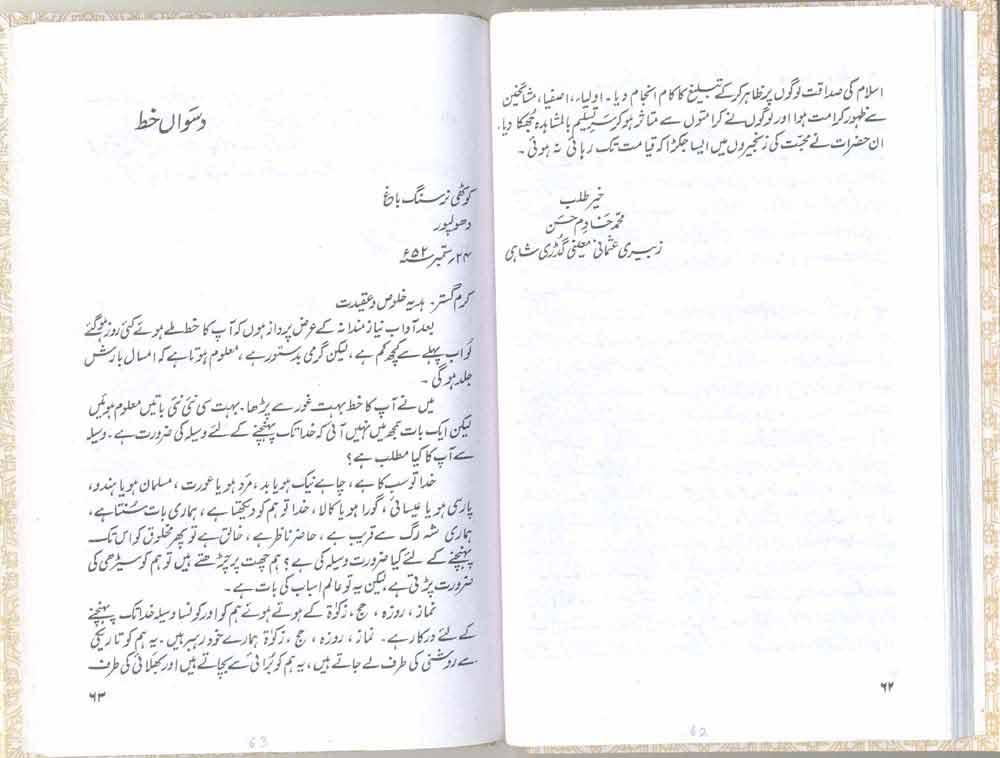 اسلام کی صداقت لوگوں پر ظاہر کرکے تبلیغ کا کام انجام دیا۔ اولیاء، اصفیا، مشائخین
سے ظہور کرامت ہوا اور لوگوں نے کرامتوں سے متاثر ہو کر سرِ تسلیم بالمشاہدہ جھکا دیا۔
ان حضرات نے محبّت کی زنجیروں میں ایسا جکڑا کہ قیامت تک رہائی نہ ہوئی۔
خیر طلب
محمّد خادم حسن
زبیری عثمانی معینی گڈری شاہی
۶۲
62
دسَواں خط
کوٹھی نرسنگ باغ
دھولپور
۲۴؍ ستمبر سنہ ۵۲ء
کرم گستر۔ ہدیہ خلوص و عقیدت
بعد آداب نیاز مندانہ کے عرض پرداز ہوں کہ آپ کا خط ملے ہوئے کئی روز ہوگئے
لُو اب پہلے سے کچھ کم ہے، لیکن گرمی بدستور ہے، معلوم ہوتا ہے کہ امسال بارش
جلد ہوگی۔
میں نے آپ کا خط بہت غور سے پڑھا۔ بہت سی نئی نئی باتیں معلوم ہوئیں
لیکن ایک بات سمجھ میں نہیں آئی کہ خدا تک پہنچنے کے لئے وسیلہ کی ضرورت ہے۔ وسیلہ
سے آپ کا کیا مطلب ہے؟
خدا تو سب کا ہے، چاہے نیک ہو یا بد، مرد ہو یا عورت، مسلمان ہو یا ہندو،
پارسی ہو یا عیسائی، گورا ہو یا کالا، خدا تو ہم کو دیکھتا ہے، ہماری بات سُنتا ہے،
ہماری شہ رگ سے قریب ہے، حاضر ناظر ہے، خالق ہے تو پھر مخلوق کو اس تک
پہنچنے کے لئے کیا ضرورت وسیلہ کی ہے؟ ہم چھت پر چڑھتے ہیں تو ہم کو سیڑھی کی
ضرورت پڑتی ہے لیکن یہ تو عالم اسباب کی بات ہے۔
نماز، روزہ، حج، زکوٰۃ کے ہوتے ہوئے ہم کو اور کونسا وسیلہ خدا تک پہنچنے
کے لئے درکار ہے۔ نماز، روزہ، حج، زکوٰۃ ہمارے خود رہبر ہیں۔ یہ ہم کو تاریکی
سے روشنی کی طرف لے جاتے ہیں، یہ ہم کو بُرائی سے بچاتے ہیں اور بھلائی کی طرف
۶۳
63